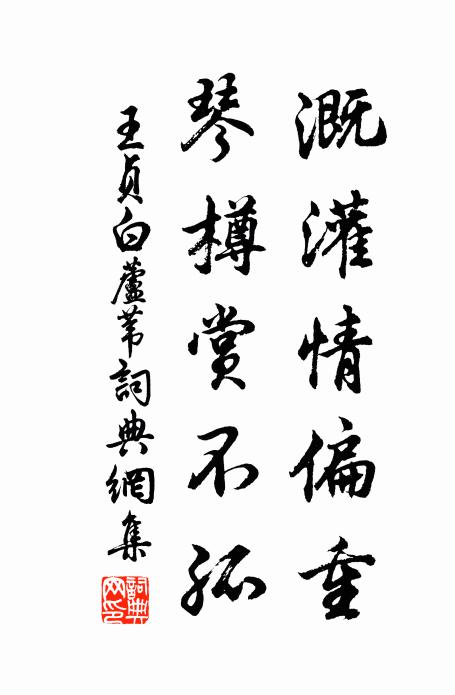 溉灌情偏重
琴樽賞不孤
王貞白蘆葦詞典網集
詞典网印